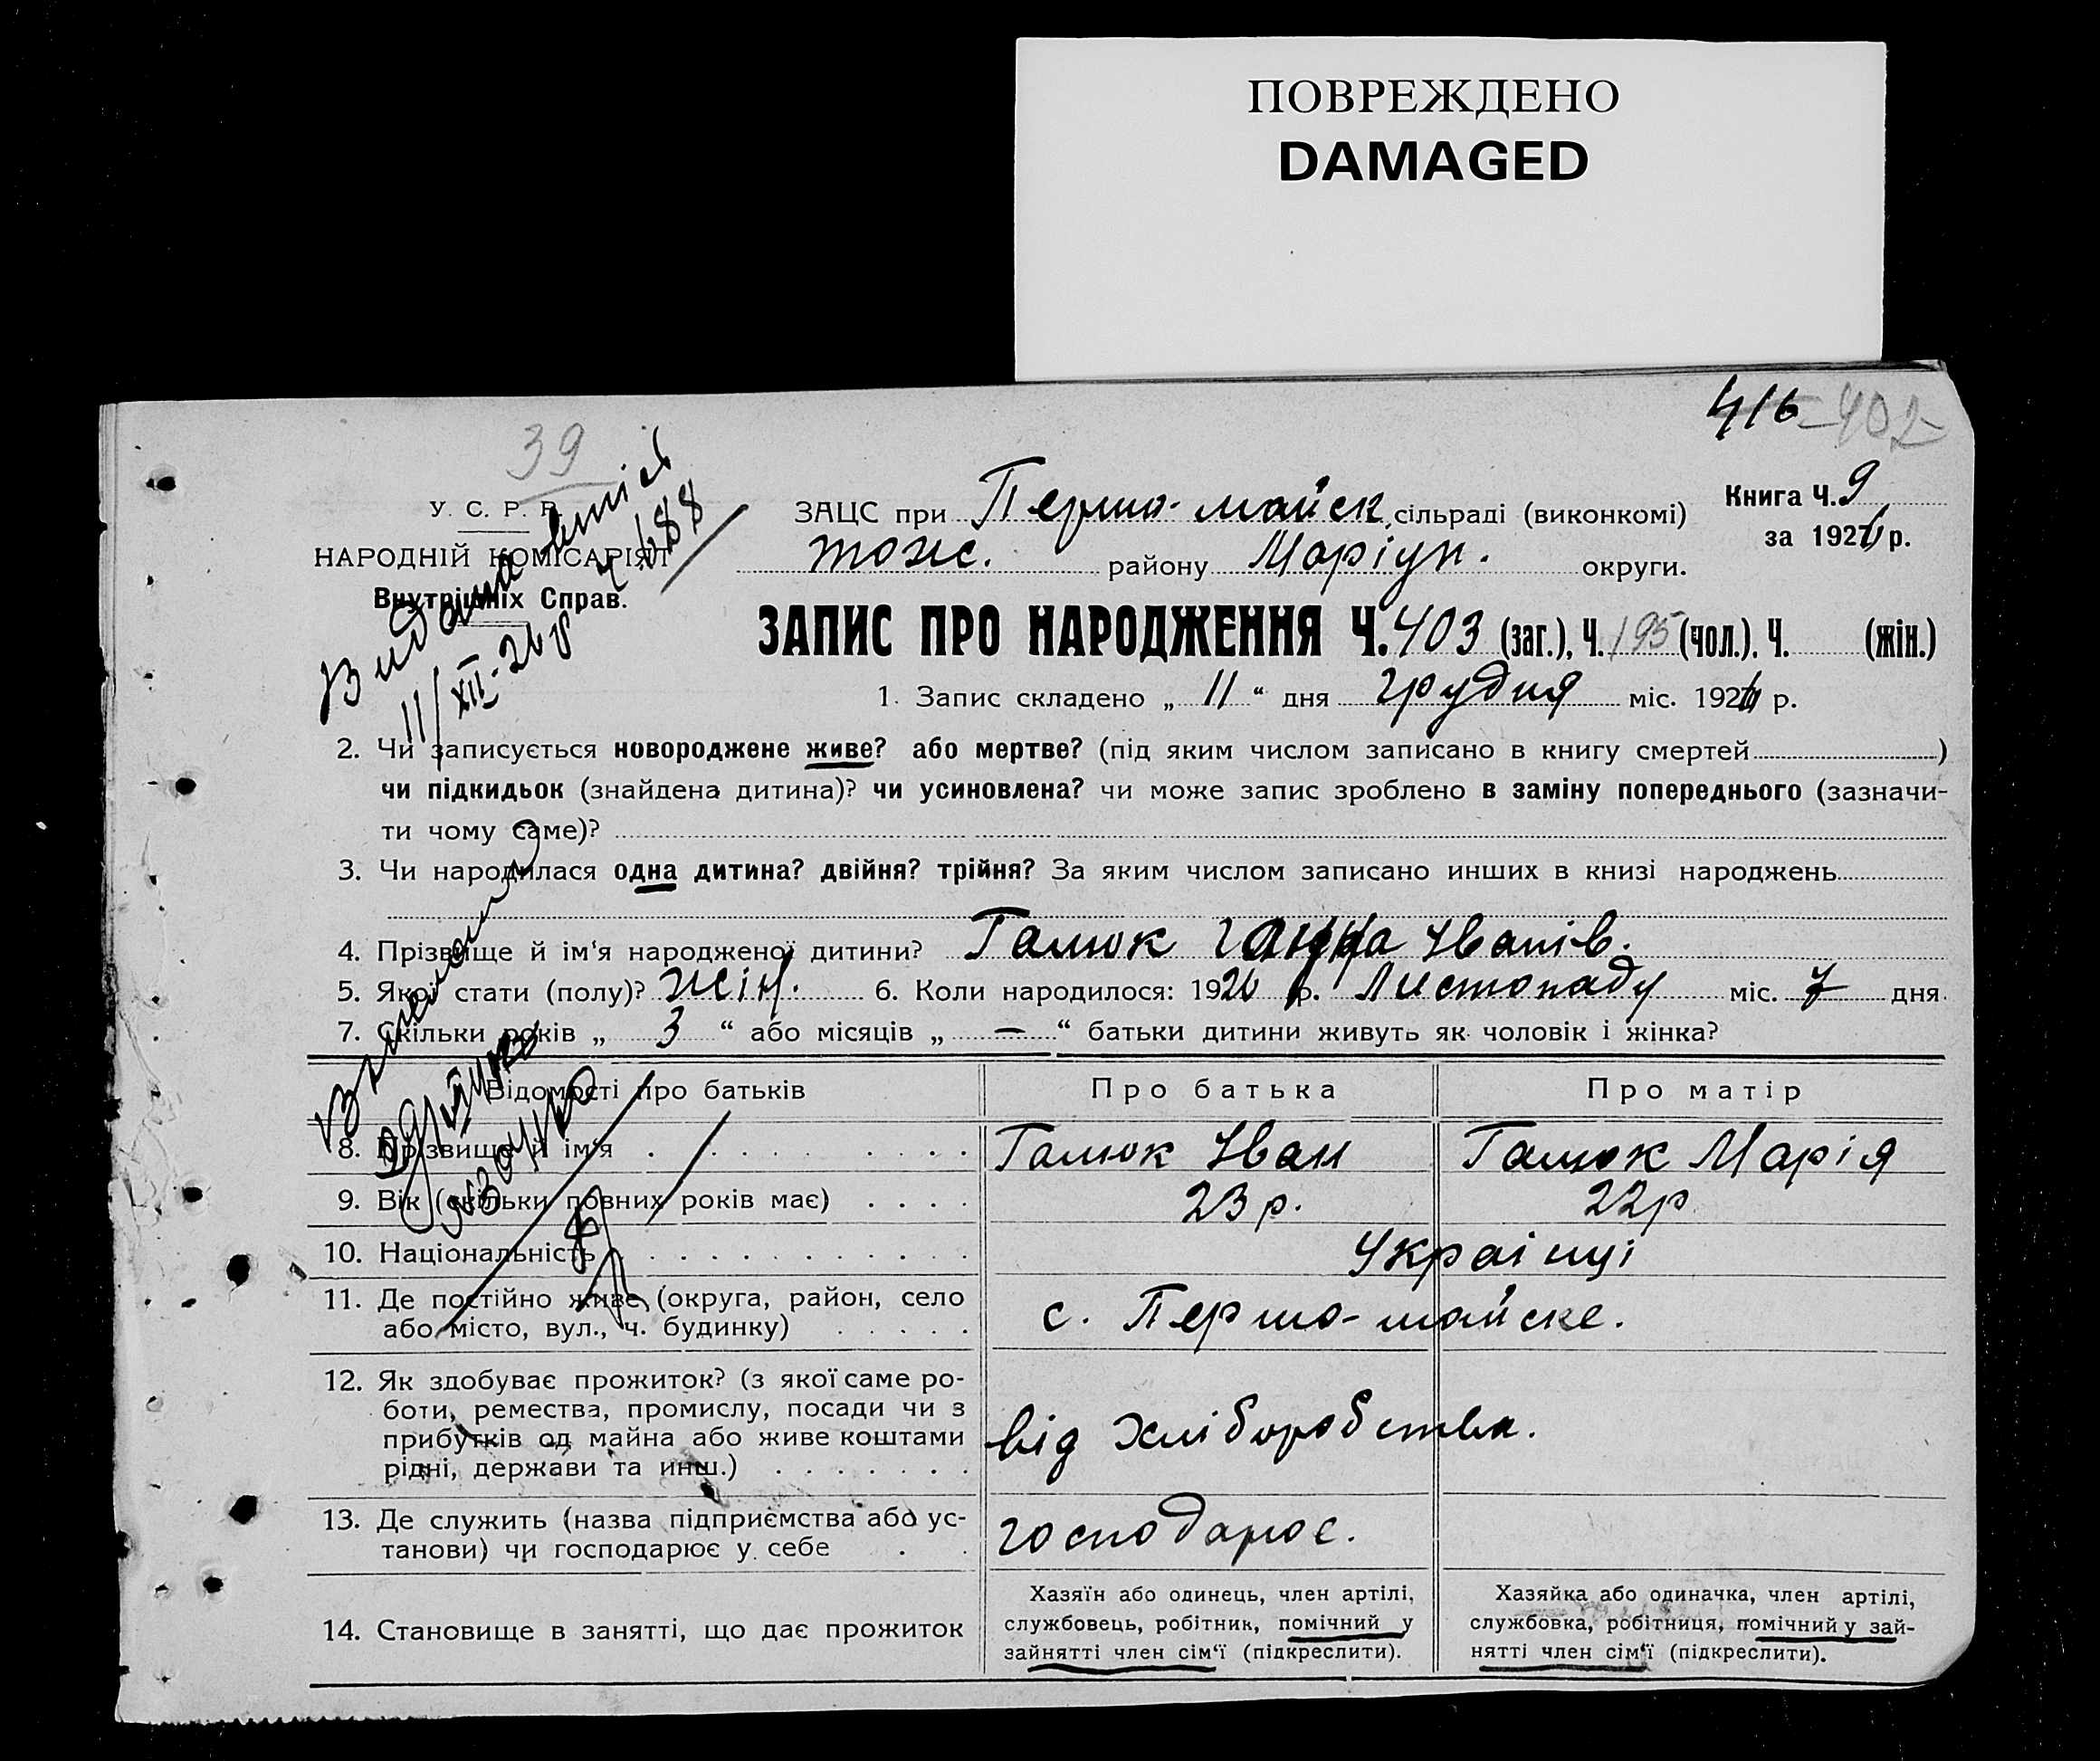 ПОВРЕЖДЕНО
DAMAGED
416 402
39
У. С. Р. Р.
НАРОДНІЙ КОМІСАРІЯТ
Внутрішніх Справ.
Видано
11/XII-26 р Ч 688
ЗАЦС при Першо-майск. сільраді (виконкомі)
тож. району Маріуп. округи.
Книга Ч. 9
за 1926 р.
ЗАПИС ПРО НАРОДЖЕННЯ Ч. 403 (заг.), Ч. 195 (чол.). Ч. (жін.)
1. Запис складено „ 11 “ дня грудня міс. 1926 р.
2. Чи записується новороджене живе? або мертве? (під яким числом записано в книгу смертей )
чи підкидьок (знайдена дитина)? чи усиновлена? чи може запис зроблено в заміну попереднього (зазначи-
ти чому саме)?
3. Чи народилася одна дитина? двійня? трійня? За яким числом записано инших в книзі народжень
4. Прізвище й ім‘я народженої дитини? Галюк Ганна Іванів.
5. Якої стати (полу)? жін. 6. Коли народилося: 1926 р. Листопаду міс. 7 дня.
7. Скільки років „ 3 “ або місяців „ — “ батьки дитини живуть як чоловік і жінка?
Відомості про батьків Про батька Про матір
8. Прізвище й ім‘я Галюк Іван Галюк Марія
9. Вік (скільки повних років має) 23 р. 22 р
10. Національність Українці
11. Де постійно живе (округа, район, село
або місто, вул., ч. будинку) с. Першо-майске.
12. Як здобуває прожиток? (з якої саме ро-
боти, ремества, промислу, посади чи з
прибутків од майна або живе коштами
рідні, держави та инш.) від хліборобства.
13. Де служить (назва підприємства або ус-
танови) чи господарює у себе господарює.
14. Становище в занятті, що дає прожиток
Хазяїн або одинець, член артілі,
службовець, робітник, помічний у
зайнятті член сім‘ї (підкреслити).
Хазяйка або одиначка, член артілі,
службовка, робітниця, помічний у зай-
нятті член сім‘ї (підкреслити).